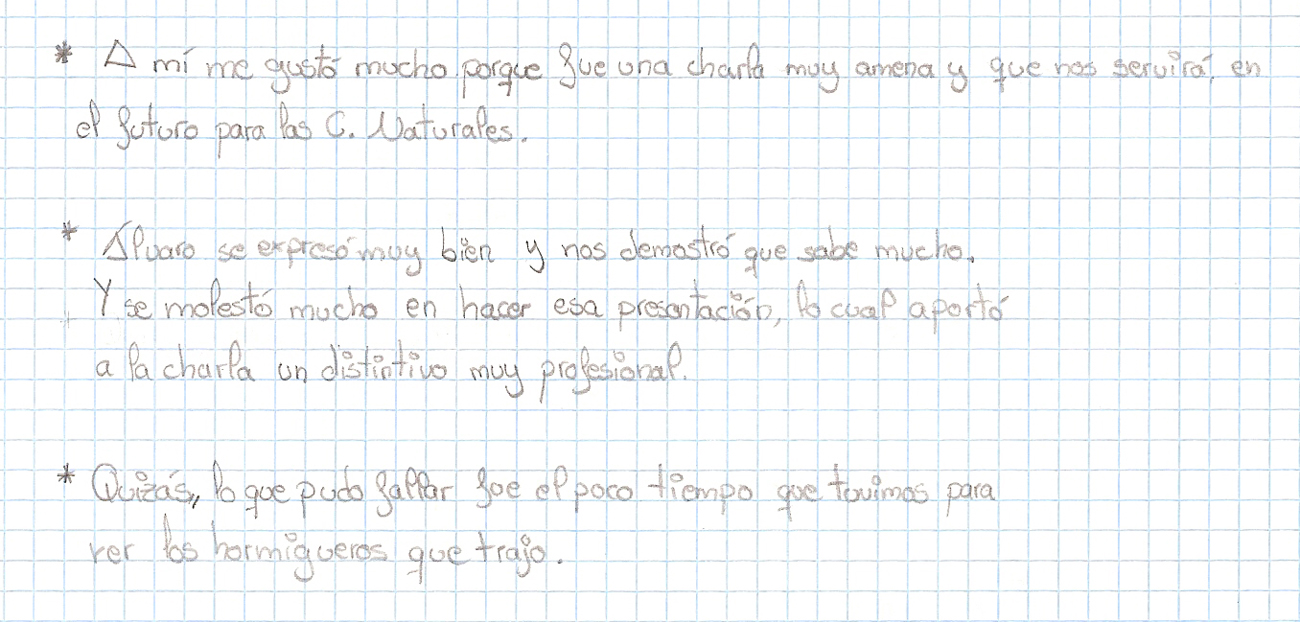 * A mí me gustó mucho porque fue una charla muy amena y que nos servirá, en
el futuro para las C. Naturales.
* Álvaro se expresó muy bien y nos demostró que sabe mucho.
Y se molestó mucho en hacer esa presentación, lo cual aportó
a la charla un distintivo muy profesional.
* Quizás, lo que pudo fallar fue el poco tiempo que tuvimos para
ver los hormigueros que trajo.